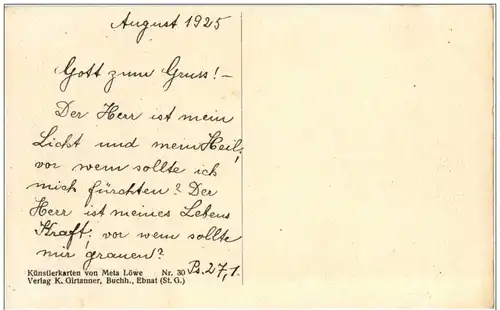 August 1925
Gott zum Gruss! –
Der Herr ist mein
Licht und mein Heil;
vor wem sollte ich
mich fürchten? Der
Herr ist meines Lebens
Kraft; vor wem sollte
mir grauen?
Ps. 27,1.
Künstlerkarten von Meta Löwe Nr. 30
Verlag K. Girtanner, Buchh., Ebnat (St. G.)